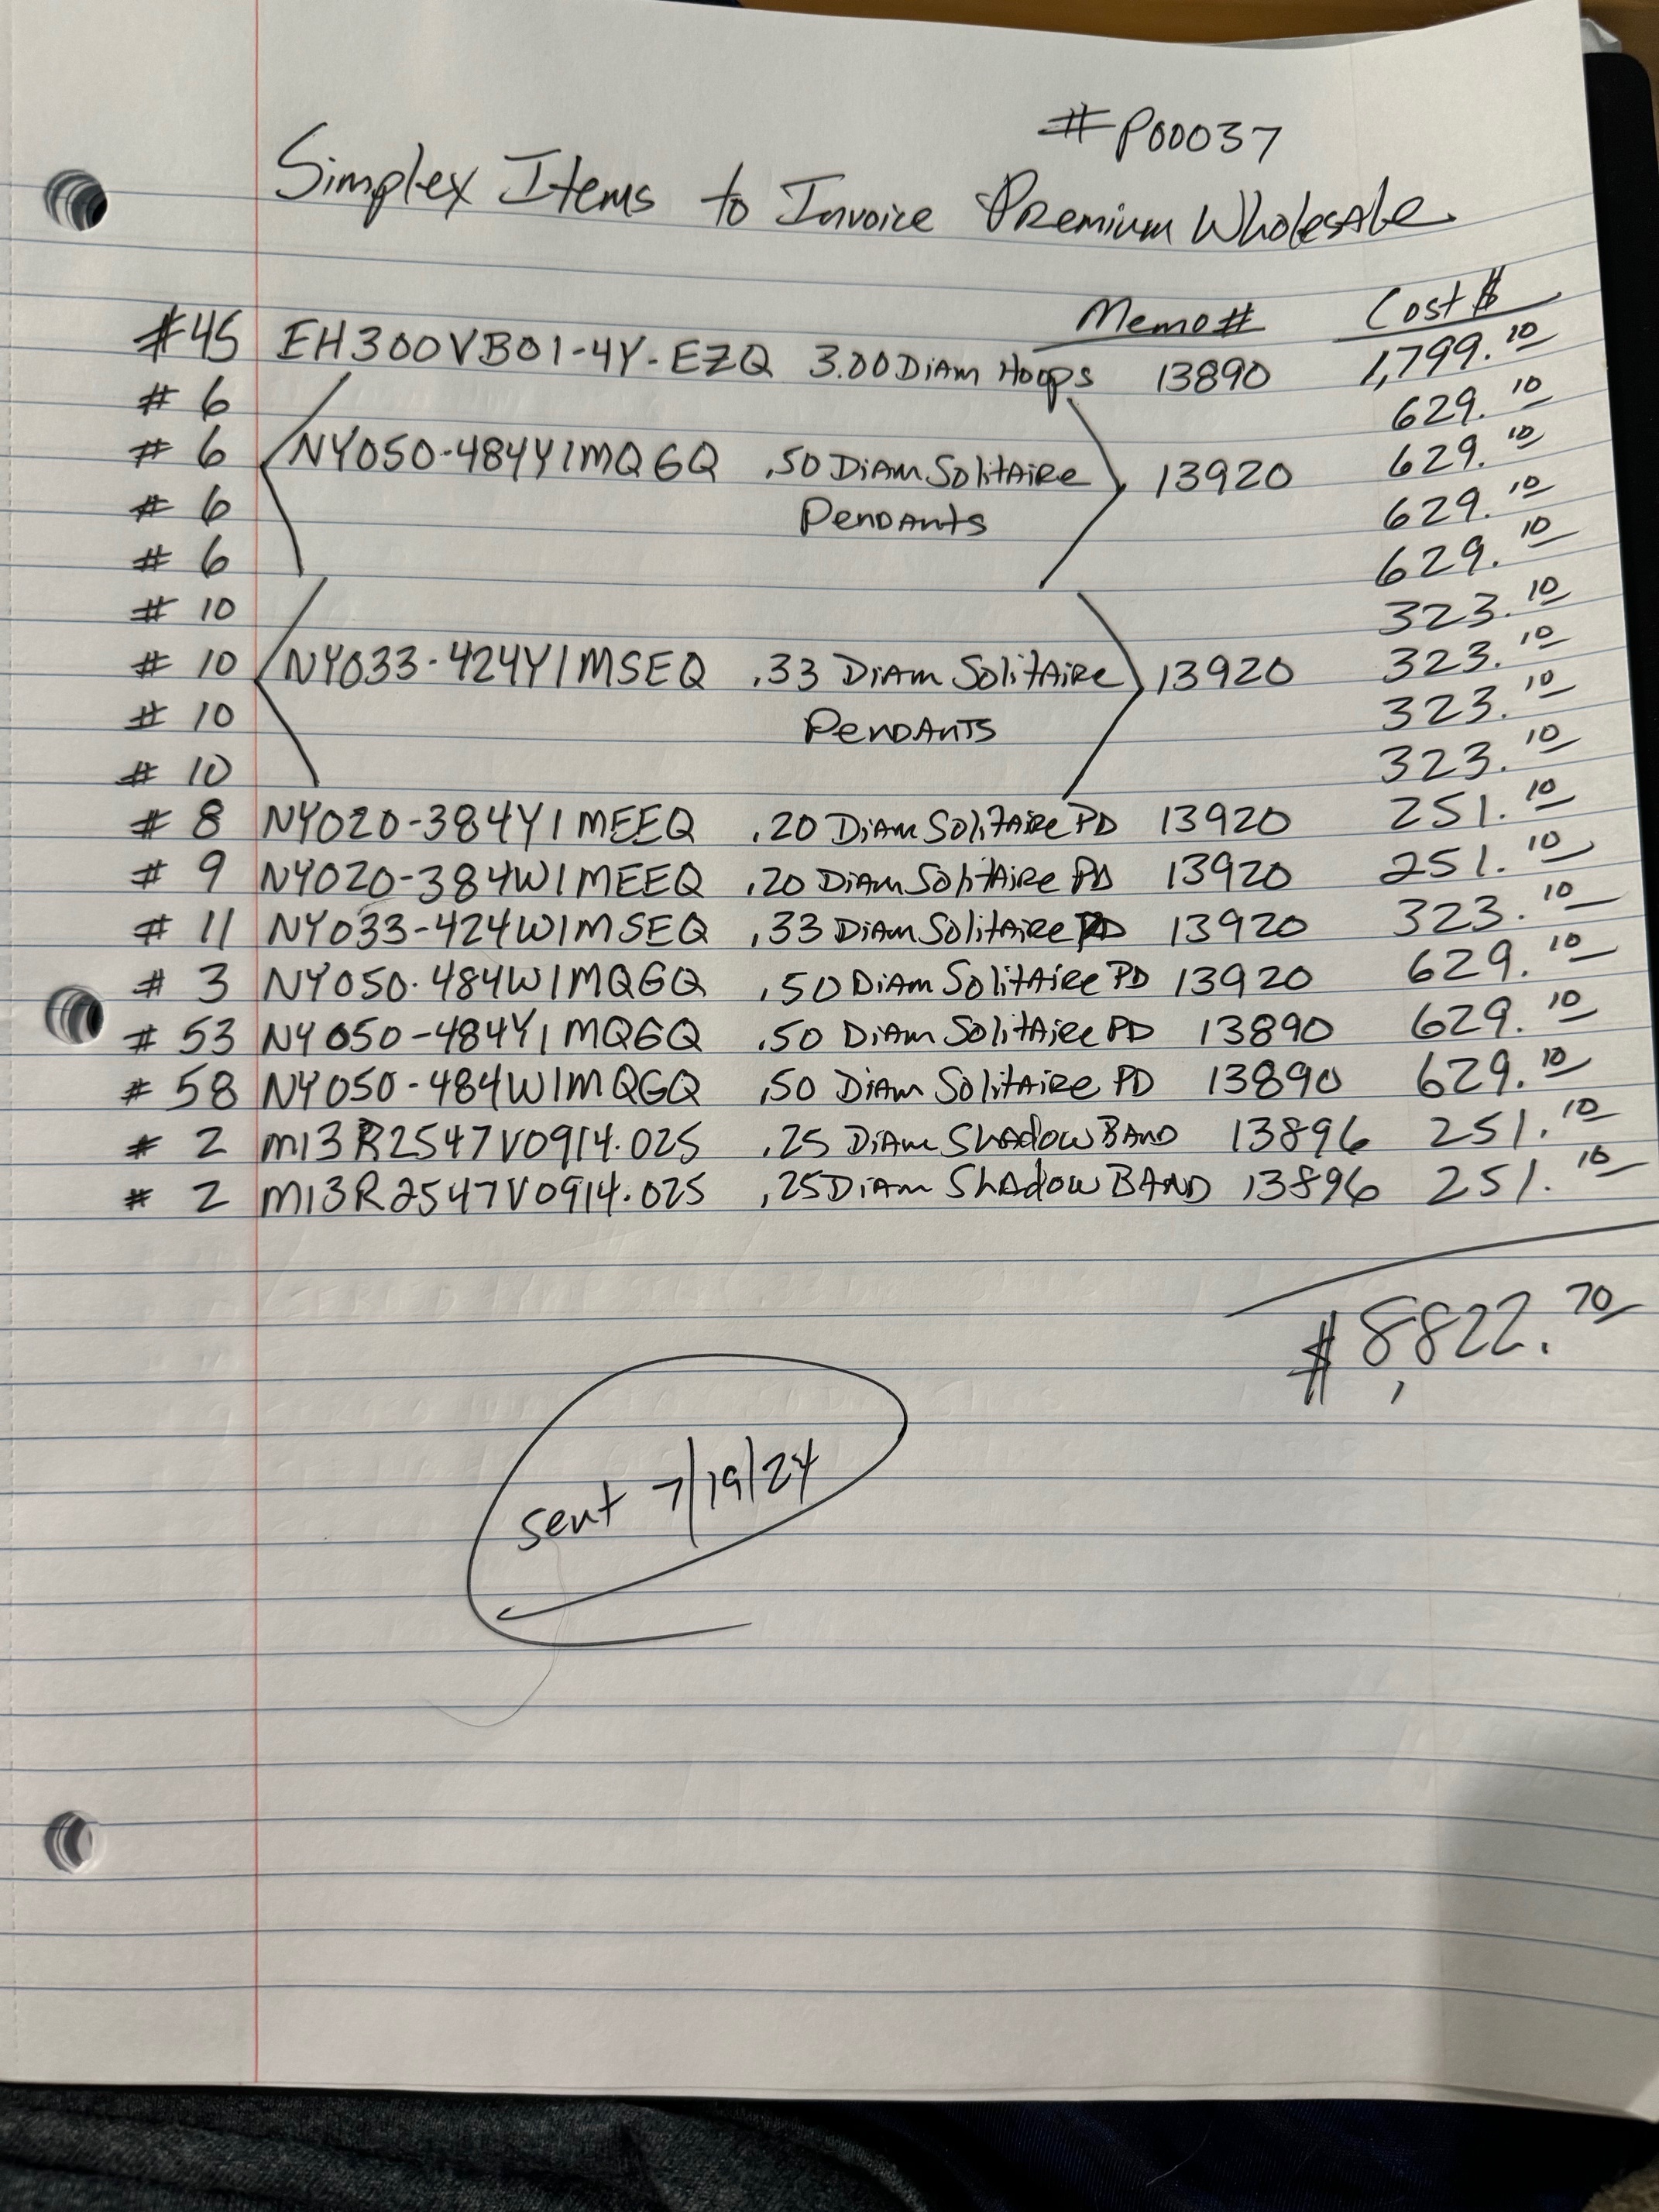 #P00037
Simplex Items to Invoice Premium Wholesale
Memo# Cost $
#45 EH300VB01-4Y-EZQ 3.00 Diam Hoops 13890 1,799.10
# 6 629.10
# 6 NY050-484Y1MQGQ .50 Diam Solitaire 13920 629.10
# 6 Pendants 629.10
# 6 629.10
# 10 323.10
# 10 NY033-424Y1MSEQ .33 Diam Solitaire 13920 323.10
# 10 Pendants 323.10
# 10 323.10
# 8 NY020-384Y1MEEQ .20 Diam Solitaire PD 13920 251.10
# 9 NY020-384W1MEEQ .20 Diam Solitaire PD 13920 251.10
# 11 NY033-424W1MSEQ .33 Diam Solitaire PD 13920 323.10
# 3 NY050-484W1MQGQ .50 Diam Solitaire PD 13920 629.10
# 53 NY050-484Y1MQGQ .50 Diam Solitaire PD 13890 629.10
# 58 NY050-484W1MQGQ .50 Diam Solitaire PD 13890 629.10
# 2 M13R2547V0914.025 .25 Diam Shadow Band 13896 251.10
# 2 M13R2547V0914.025 .25 Diam Shadow Band 13896 251.10
$8,822.70
sent 7/19/24